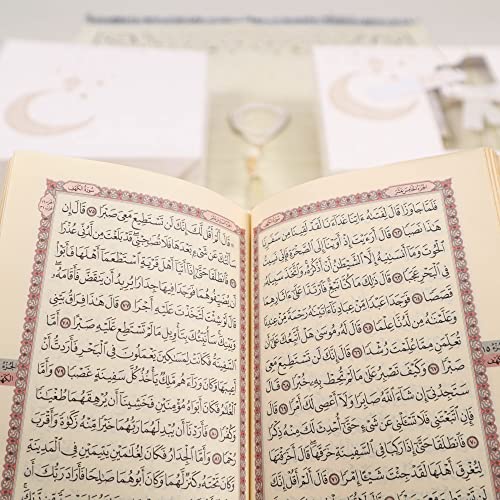 الجزء الخامس عشر
فَلَمَّا جَاوَزَا قَالَ لِفَتَىٰهُ ءَاتِنَا غَدَآءَنَا لَقَدْ لَقِينَا مِن سَفَرِنَا
هَٰذَا نَصَبًا ٦٢ قَالَ أَرَءَيْتَ إِذْ أَوَيْنَآ إِلَى ٱلصَّخْرَةِ فَإِنِّي نَسِيتُ
ٱلْحُوتَ وَمَآ أَنسَىٰنِيهُ إِلَّا ٱلشَّيْطَٰنُ أَنْ أَذْكُرَهُۥ وَٱتَّخَذَ سَبِيلَهُۥ
فِي ٱلْبَحْرِ عَجَبًا ٦٣ قَالَ ذَٰلِكَ مَا كُنَّا نَبْغِ فَٱرْتَدَّا عَلَىٰٓ ءَاثَارِهِمَا
قَصَصًا ٦٤ فَوَجَدَا عَبْدًا مِّنْ عِبَادِنَآ ءَاتَيْنَٰهُ رَحْمَةً مِّنْ عِندِنَا
وَعَلَّمْنَٰهُ مِن لَّدُنَّا عِلْمًا ٦٥ قَالَ لَهُۥ مُوسَىٰ هَلْ أَتَّبِعُكَ عَلَىٰٓ
أَن تُعَلِّمَنِ مِمَّا عُلِّمْتَ رُشْدًا ٦٦ قَالَ إِنَّكَ لَن تَسْتَطِيعَ مَعِيَ
صَبْرًا ٦٧ وَكَيْفَ تَصْبِرُ عَلَىٰ مَا لَمْ تُحِطْ بِهِۦ خُبْرًا ٦٨ قَالَ
سَتَجِدُنِيٓ إِن شَآءَ ٱللَّهُ صَابِرًا وَلَآ أَعْصِي لَكَ أَمْرًا ٦٩ قَالَ
فَإِنِ ٱتَّبَعْتَنِي فَلَا تَسْـَٔلْنِي عَن شَيْءٍ حَتَّىٰٓ أُحْدِثَ لَكَ مِنْهُ ذِكْرًا ٧٠
فَٱنطَلَقَا حَتَّىٰٓ إِذَا رَكِبَا فِي ٱلسَّفِينَةِ خَرَقَهَا قَالَ أَخَرَقْتَهَا
لِتُغْرِقَ أَهْلَهَا لَقَدْ جِئْتَ شَيْـًٔا إِمْرًا ٧١ قَالَ أَلَمْ أَقُلْ إِنَّكَ
سورة الكهف
قَالَ أَلَمْ أَقُل لَّكَ إِنَّكَ لَن تَسْتَطِيعَ مَعِيَ صَبْرًا ٧٥ قَالَ إِن
سَأَلْتُكَ عَن شَيْءٍۭ بَعْدَهَا فَلَا تُصَٰحِبْنِي قَدْ بَلَغْتَ مِن لَّدُنِّي عُذْرًا
٧٦ فَٱنطَلَقَا حَتَّىٰٓ إِذَآ أَتَيَآ أَهْلَ قَرْيَةٍ ٱسْتَطْعَمَآ أَهْلَهَا فَأَبَوْا۟
أَن يُضَيِّفُوهُمَا فَوَجَدَا فِيهَا جِدَارًا يُرِيدُ أَن يَنقَضَّ فَأَقَامَهُۥ
قَالَ لَوْ شِئْتَ لَتَّخَذْتَ عَلَيْهِ أَجْرًا ٧٧ قَالَ هَٰذَا فِرَاقُ بَيْنِي
وَبَيْنِكَ سَأُنَبِّئُكَ بِتَأْوِيلِ مَا لَمْ تَسْتَطِع عَّلَيْهِ صَبْرًا ٧٨ أَمَّا
ٱلسَّفِينَةُ فَكَانَتْ لِمَسَٰكِينَ يَعْمَلُونَ فِي ٱلْبَحْرِ فَأَرَدتُّ أَنْ
أَعِيبَهَا وَكَانَ وَرَآءَهُم مَّلِكٌ يَأْخُذُ كُلَّ سَفِينَةٍ غَصْبًا ٧٩ وَأَمَّا
ٱلْغُلَٰمُ فَكَانَ أَبَوَاهُ مُؤْمِنَيْنِ فَخَشِينَآ أَن يُرْهِقَهُمَا طُغْيَٰنًا
وَكُفْرًا ٨٠ فَأَرَدْنَآ أَن يُبْدِلَهُمَا رَبُّهُمَا خَيْرًا مِّنْهُ زَكَوٰةً وَأَقْرَبَ
رُحْمًا ٨١ وَأَمَّا ٱلْجِدَارُ فَكَانَ لِغُلَٰمَيْنِ يَتِيمَيْنِ فِي ٱلْمَدِينَةِ
وَكَانَ تَحْتَهُۥ كَنزٌ لَّهُمَا وَكَانَ أَبُوهُمَا صَٰلِحًا فَأَرَادَ رَبُّكَ أَن